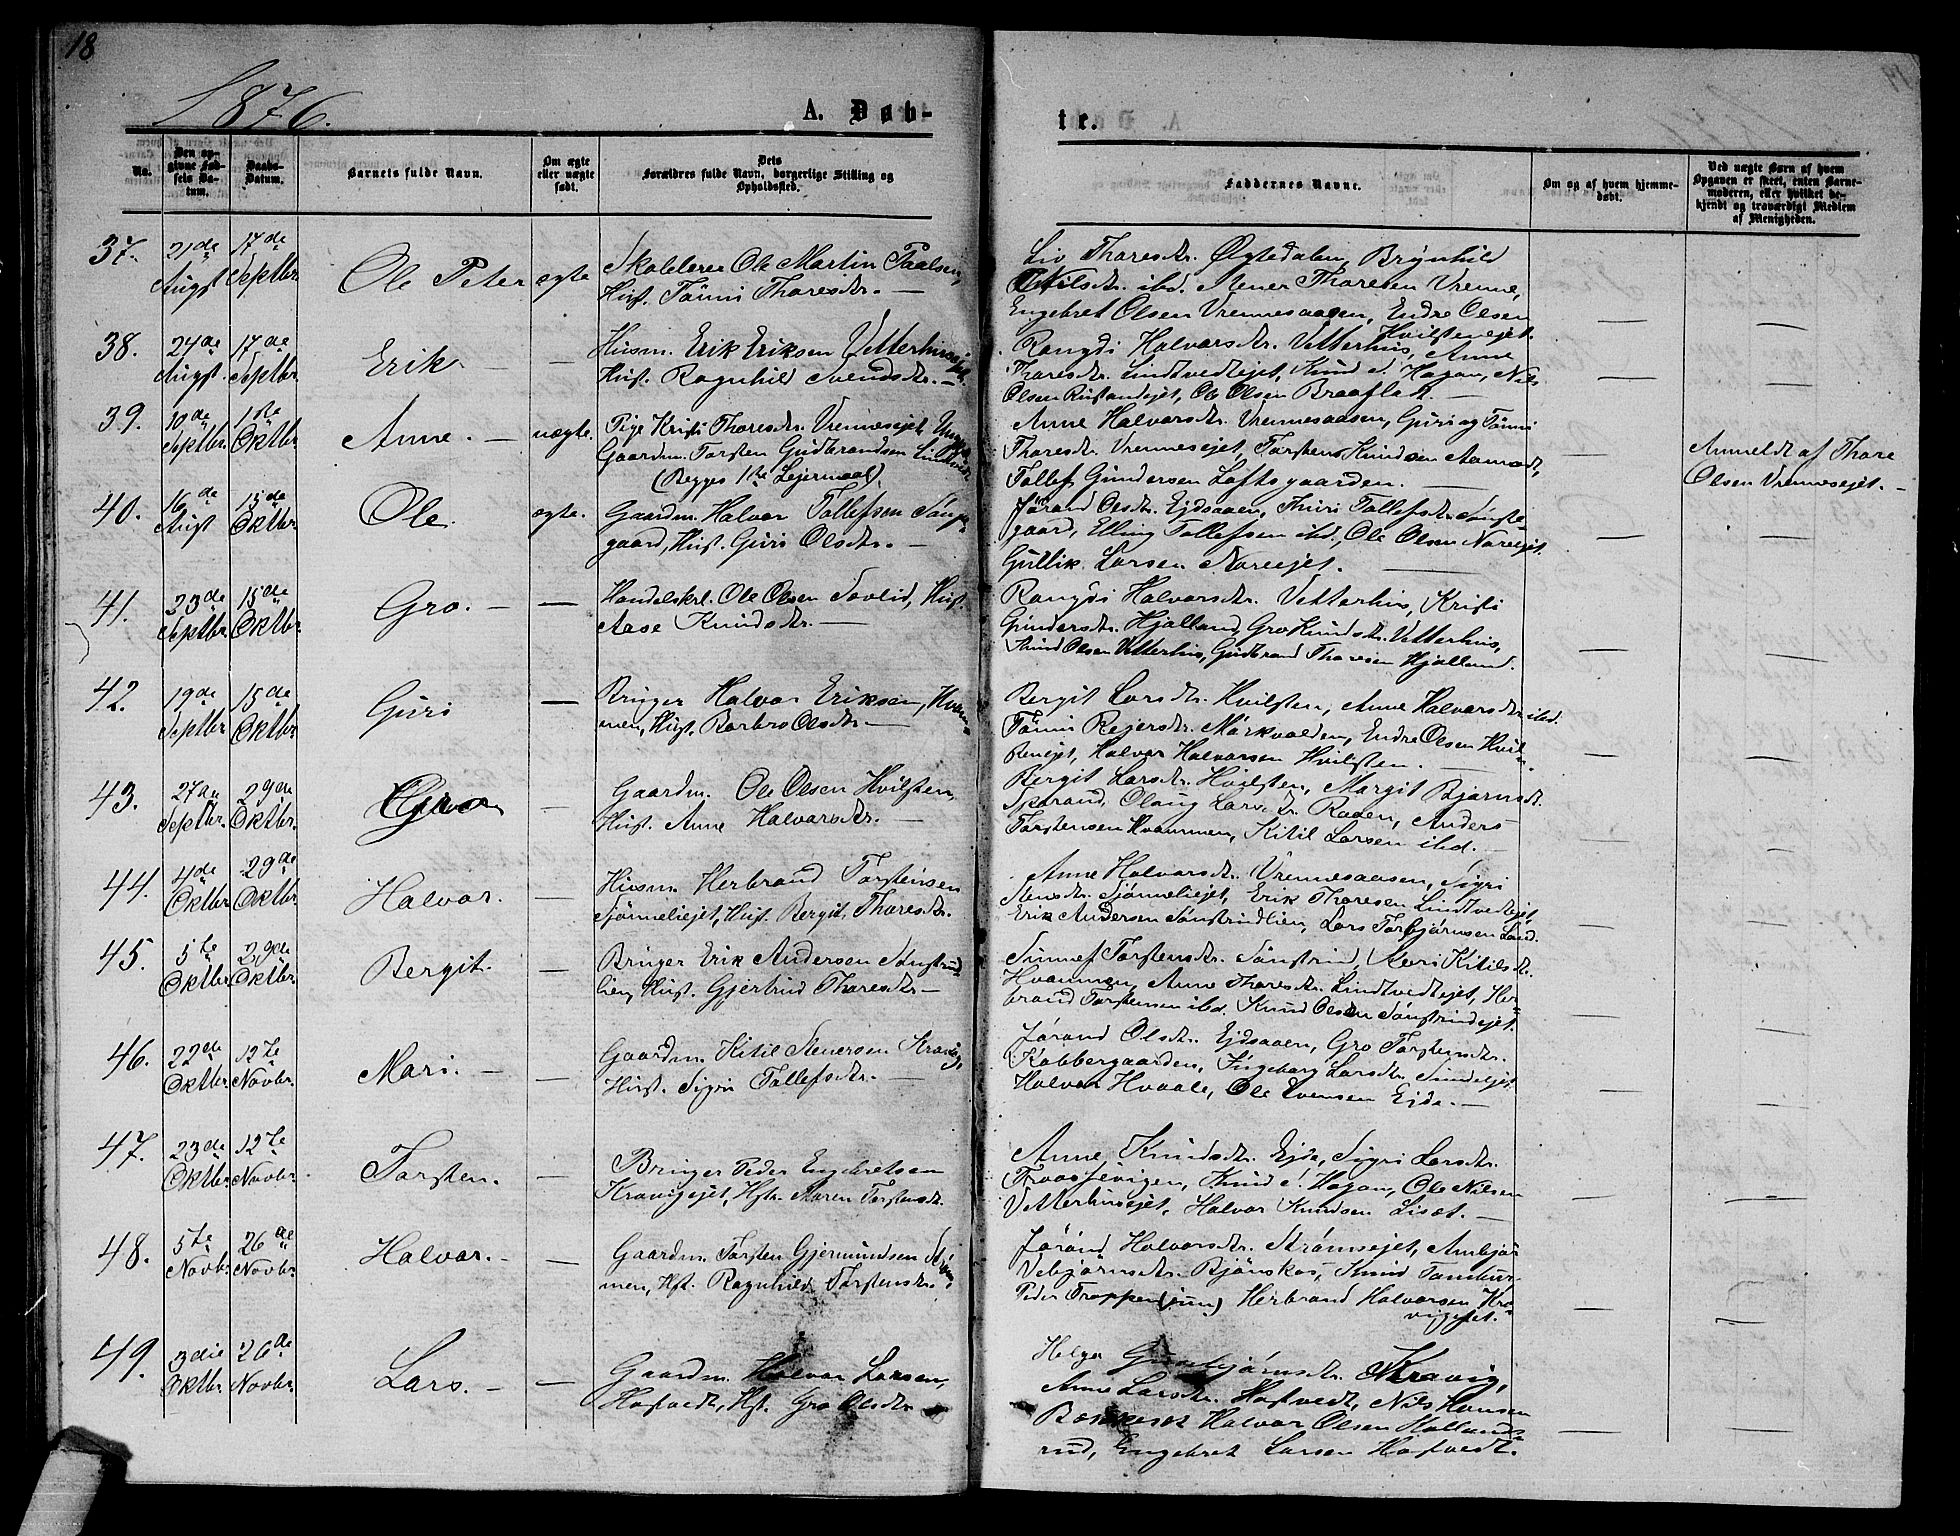 18
1876.
A. Døb-
te.
No.
Den opgivne Fødsels Datum.
Daabs-Datum.
Barnets fulde Navn.
Om ægte eller uægte født.
Dets Forældres fulde Navn, borgerlige Stilling og Opholdssted.
Faddernes Navne.
Om og af hvem hjemmedøbt.
Ved uægte Børn af hvem Opgaven er skeet, enten Barnemoderen, eller hvilket bekjendt og troværdigt Medlem af Menigheden.
37. 21de Augst 17de Septbr. Ole Peter ægte
Skolelærer Ole Martin Paalsen,
Hust. Tönni Thoresdtr. —
Liv Thoresdtr. Øgtedalen, Brynhild
Nilsdtr. ibd. Stener Thoresen Vrenne,
Engebret Olsen Vrennesaasen, Endre Olsen
Hvilstenejet.
38. 24de Augst 17de Septbr. Erik. — —
Husm. Erik Eriksen Vetterhusejet.
Hust. Ragnhild Svendsdtr. —
Rangdi Halvorsdtr. Vetterhus, Anne
Thoresdtr. Lindtvedtejet, Knud S. Hagan, Nils
Olsen Rustandejet, Ole Olsen Braafladt. —
39. 10de Septbr. 1ste Oktbr. Anne. — uægte.
Pige Kristi Thoresdtr. Vrennesejet, Ungk.
Gaardm. Torsten Gudbrandsen Lindtvedt.
(Begges 1ste Lejermaal).
Anne Halvorsdtr. Vrennesaasen, Guri og Tönni
Thoresdtr. Vrennesejet, Torsten Knudsen Aamodt,
Tollef Gundersen Loftsgaarden. —
Anmeldt af Thore
Olsen Vrennesejet. —
40. 16de Augst 15de Oktbr. Ole. ægte.
Gaardm. Halvor Tollefsen Söngegaard, Hust. Guri Olsdtr. —
Jörand Olsdtr. Ejdsaaen, Thuri Tollefsdtr. Söngegaard, Elling Tollefsen ibd., Ole Olsen Noreejet.
Gullik Larsen Noreejet. —
41. 23de Septbr. 15de Oktbr. Gro. — —
Handelskrl. Ole Olsen Sovlid, Hust.
Aase Knudsdtr. —
Rangdi Halvorsdtr. Vetterhus, Kristi
Gundersdtr. Hjalland, Gro Knudsdtr. Vetterhus,
Knud Olsen Vetterhus, Gudbrand Thoresen Hjalland.
42. 19de Septbr. 15de Oktbr. Guri —
Bruger Halvor Eriksen, Hvammen, Hust. Barbro Olsdtr. —
Bergit Larsdtr. Hvilsten, Anne Halvorsdtr. ibd.
Tönni Rejersdtr. Mörkvolden, Endre Olsen Hvilstenejet, Halvor Halvorsen Hvilsten. —
43. 27de Septbr. 29de Oktbr. Gro —
Gaardm. Ole Olsen Hvilsten,
Hust. Anne Halvorsdtr. —
Bergit Larsdtr. Hvilsten, Margit Bjørnsdt.
Sporand, Olaug Larsdtr. Roden, Anders
Torstensen Hvammen, Kitil Larsen ibd. —
44. 4de Oktbr. 29de Oktbr. Halvor. —
Husm. Herbrand Torstensen
Sjönneliejet, Hust. Bergit Thoresdtr.
Anne Halvorsdtr. Vrennesaasen, Sigri
Stensdtr. Sjönneliejet, Erik Thoresen Lindtvedtejet,
Erik Andersen Sönstrudlien, Lars Torbjörnsen Land.
45. 5te Oktbr. 29de Oktbr. Bergit. —
Bruger Erik Andersen Sönstrudlien, Hust. Gjertrud Thoresdtr. —
Sunnef Torstensdtr. Sönstrud, Kari Kitilsdtr.
Hvammen, Anne Thoresdtr. Lindtvedtejet, Herbrand Torstensen ibd. Knud Olsen Sönstrudejet.
46. 22de Oktbr. 12te Novbr. Mari. — —
Gaardm. Kitil Stenersen Kravig,
Hust. Sigri Tollefsdtr. —
Jörand Olsdtr. Ejdsaaen, Gro Torstensdtr.
Kobbergaarden, Ingeborg Larsdtr. Sundejet,
Halvor Hvaale, Ole Evensen Ejde. —
47. 23de Oktbr. 12te Novbr. Torsten. —
Bruger Peder Engebretsen
Kravigejet, Hst. Maren Torstensdtr.
Anne Knudsdtr. Ejde, Sigri Larsdtr.
Traasjevigen, Knud S. Hagan, Ole Nilsen
Vetterhusejet, Halvor Knudsen Liset. —
48. 5te Novbr. 26de Novbr. Halvor. — —
Gaardm. Torsten Gjermundsen
men, Hst. Ragnhild Torstensdtr.
Jörand Halvorsdtr. Strömsejet, Ambjör
Vebjörnsdtr. Bjönskos, Knud Tambur
Peder Troppen (jun) Herbrand Halvorsen Kravigejet.
49. 3die Oktbr. 26de Novbr. Lars. — —
Gaardm. Halvor Larsen,
Hoftvedt, Hst. Gro Olsdtr. —
Helga Gunbjörnsdtr. Kravig,
Anne Larsdtr. Hoftvedt, Nils Hansen
Halvor Olsen Hollandsrud, Engebret Larsen Hoftvedt.